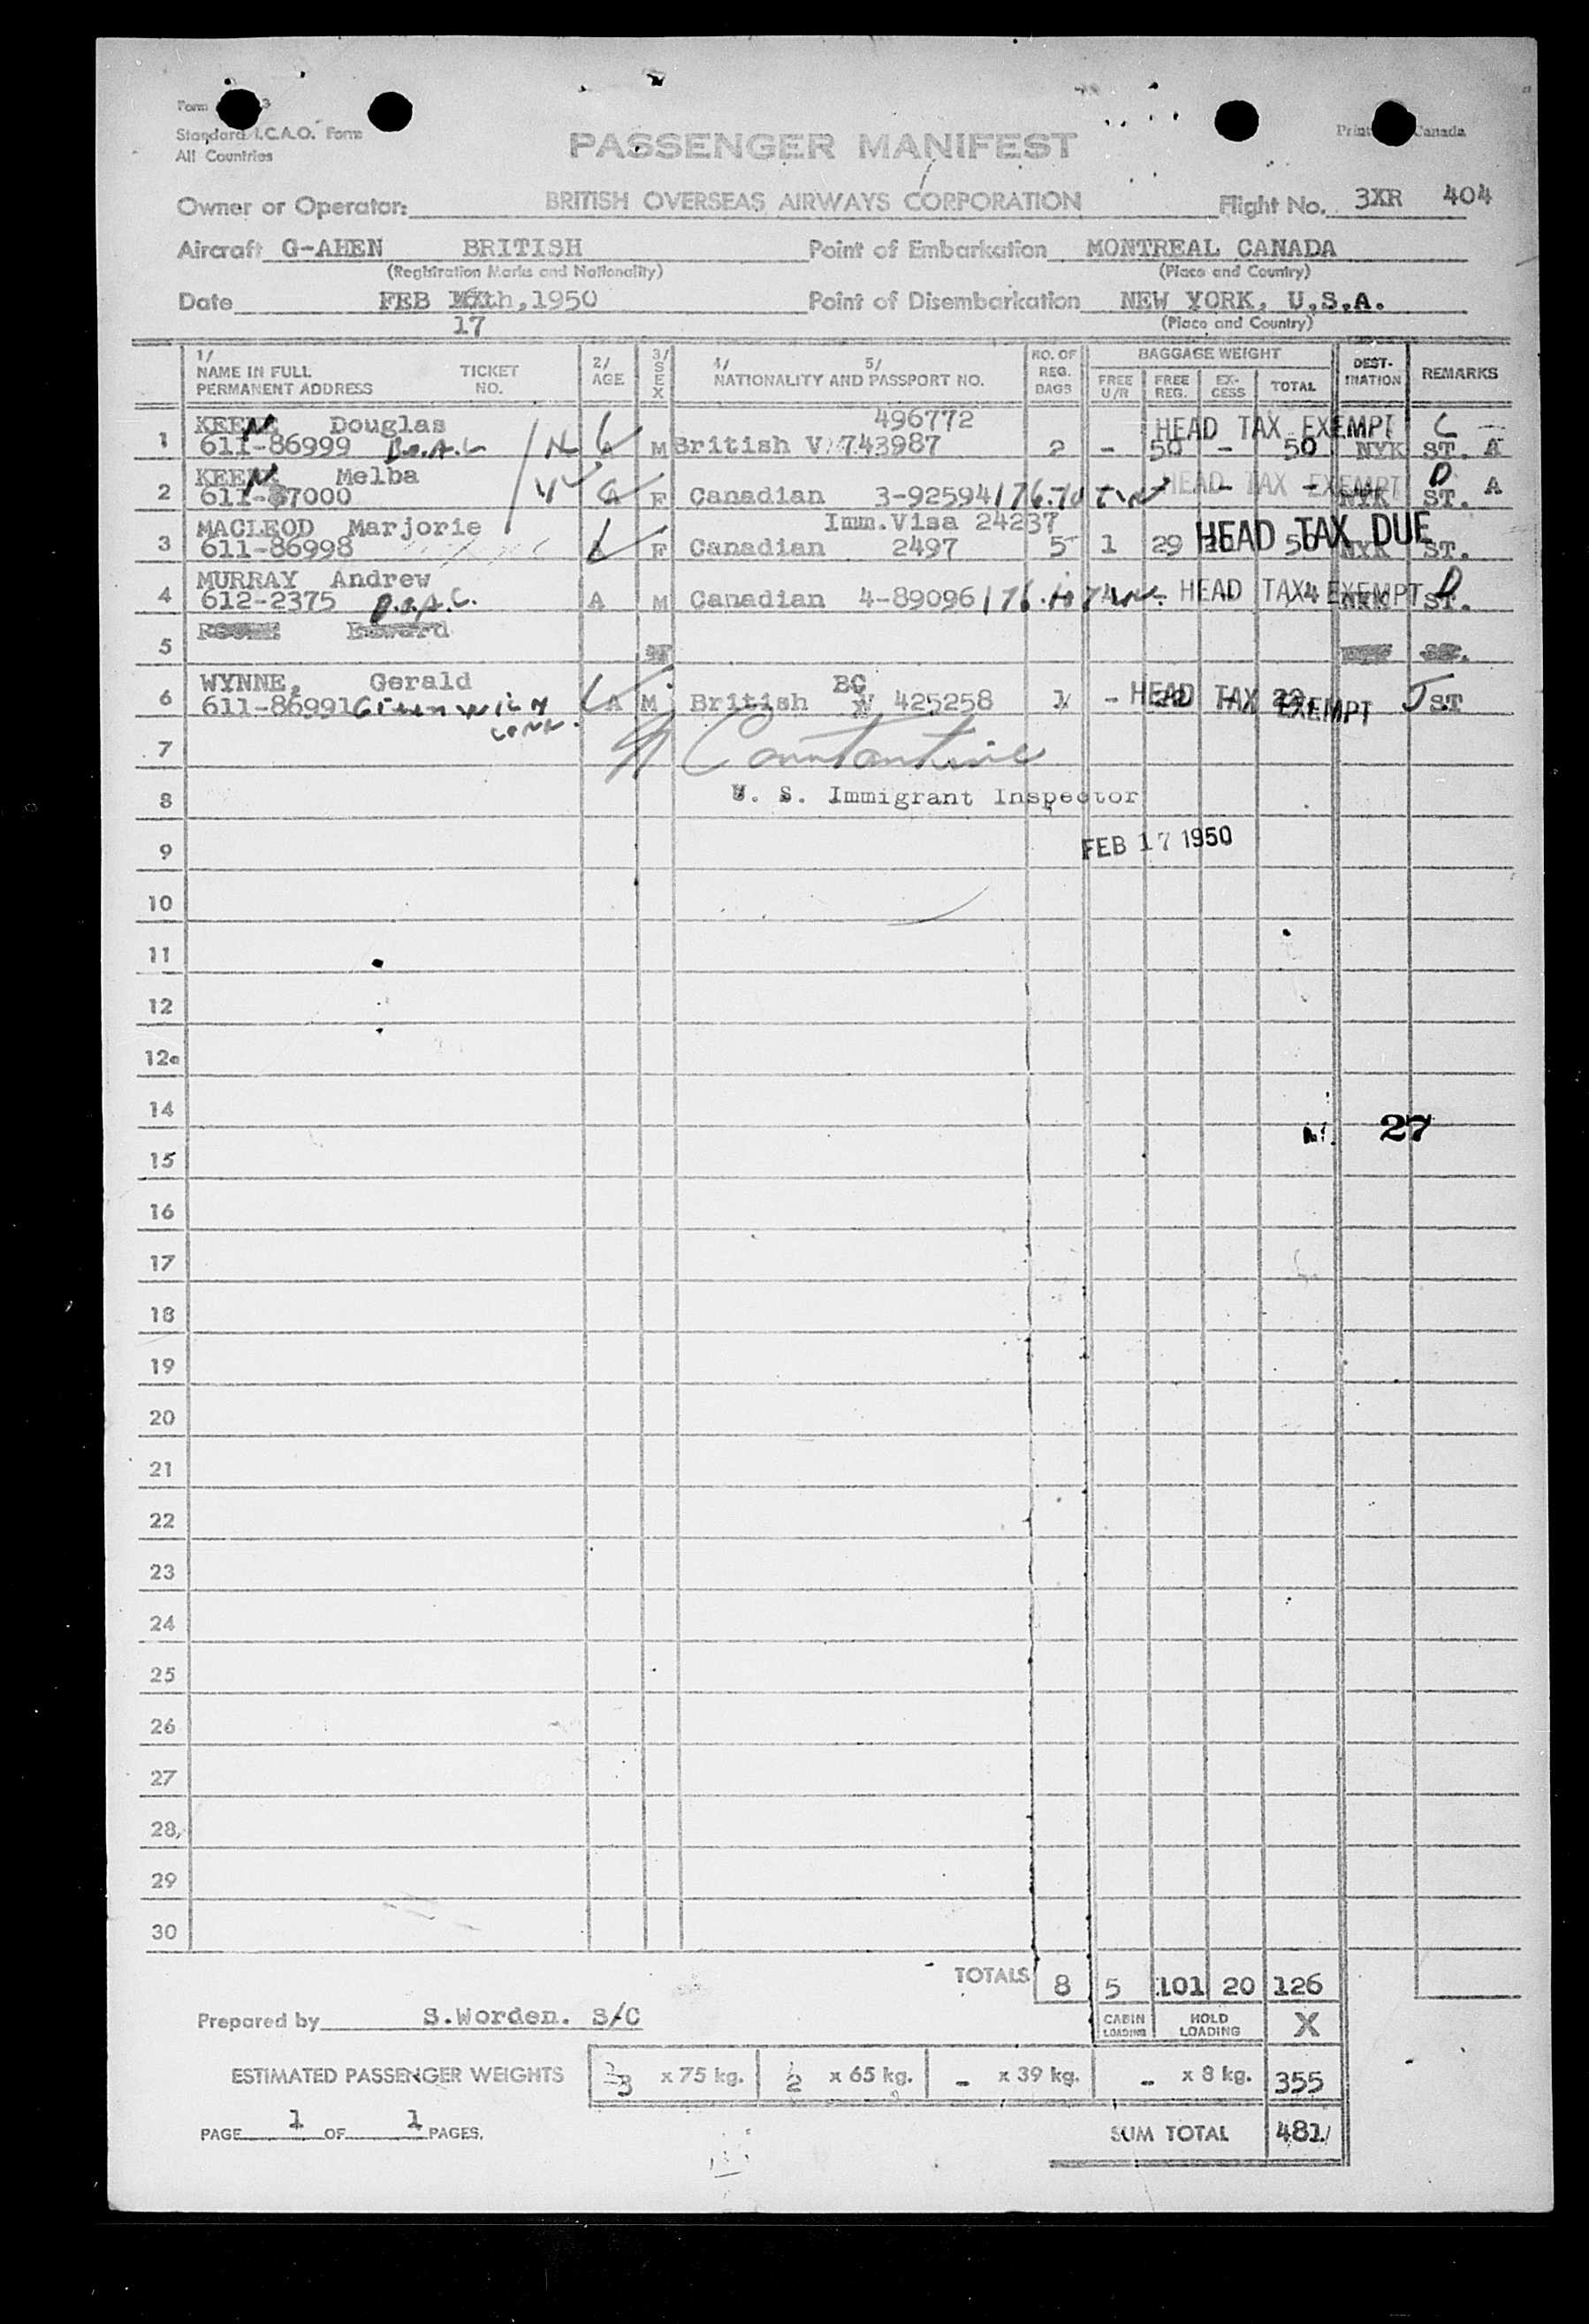 Form
Standard I.C.A.O. Form
All Countries
Canada
PASSENGER MANIFEST
Owner or Operator: BRITISH OVERSEAS AIRWAYS CORPORATION Flight No. 3XR 404
Aircraft G-AHEN BRITISH Point of Embarkation MONTREAL CANADA
(Registration Marks and Nationality) (Place and Country)
Date FEB th, 1950 Point of Disembarkation NEW YORK, U.S.A.
17 (Place and Country)
1/ NAME IN FULL PERMANENT ADDRESS TICKET NO. 2/ AGE 3/ SEX 4/ 5/ NATIONALITY AND PASSPORT NO. NO. OF REG. BAGS BAGGAGE WEIGHT FREE U/R FREE REG. EX-CESS TOTAL DEST-INATION REMARKS
KEEN Douglas 496772 HEAD TAX EXEMPT C
1 611-86999 B.O.A.C M British V 743987 2 - 50 - 50 NYK ST. A
KEEN Melba HEAD TAX EXEMPT D
2 611-87000 A F Canadian 3-92594 - - NYK ST. A
MACLEOD Marjorie Imm.Visa 24237 HEAD TAX DUE
3 611-86998 A F Canadian 2497 5 1 29 20 50 NYK ST.
MURRAY Andrew HEAD TAX EXEMPT D
4 612-2375 B.O.A.C. A M Canadian 4-89096 4 NYK ST.
5 Edward
WYNNE, Gerald BC HEAD TAX EXEMPT
6 611-86991 A M British V 425258 1 - 22 - 22 J ST
Conn.
7 Constantine
8 U. S. Immigrant Inspector
9 FEB 17 1950
10
11
12
12a
14
27
15
16
17
18
19
20
21
22
23
24
25
26
27
28
29
30
TOTALS 8 5 101 20 126
Prepared by S.Worden. S/C CABIN LOADING HOLD LOADING X
ESTIMATED PASSENGER WEIGHTS 3 x 75 kg. 2 x 65 kg. - x 39 kg. - x 8 kg. 355
PAGE 1 OF 1 PAGES. SUM TOTAL 481